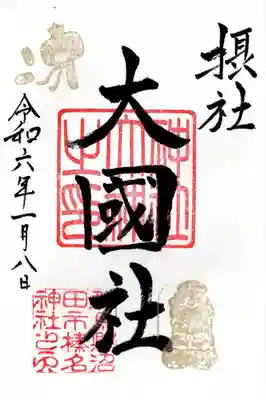 摂社
大國社
令和六年一月八日
神社
之印
群馬県沼
田市榛名
神社之印